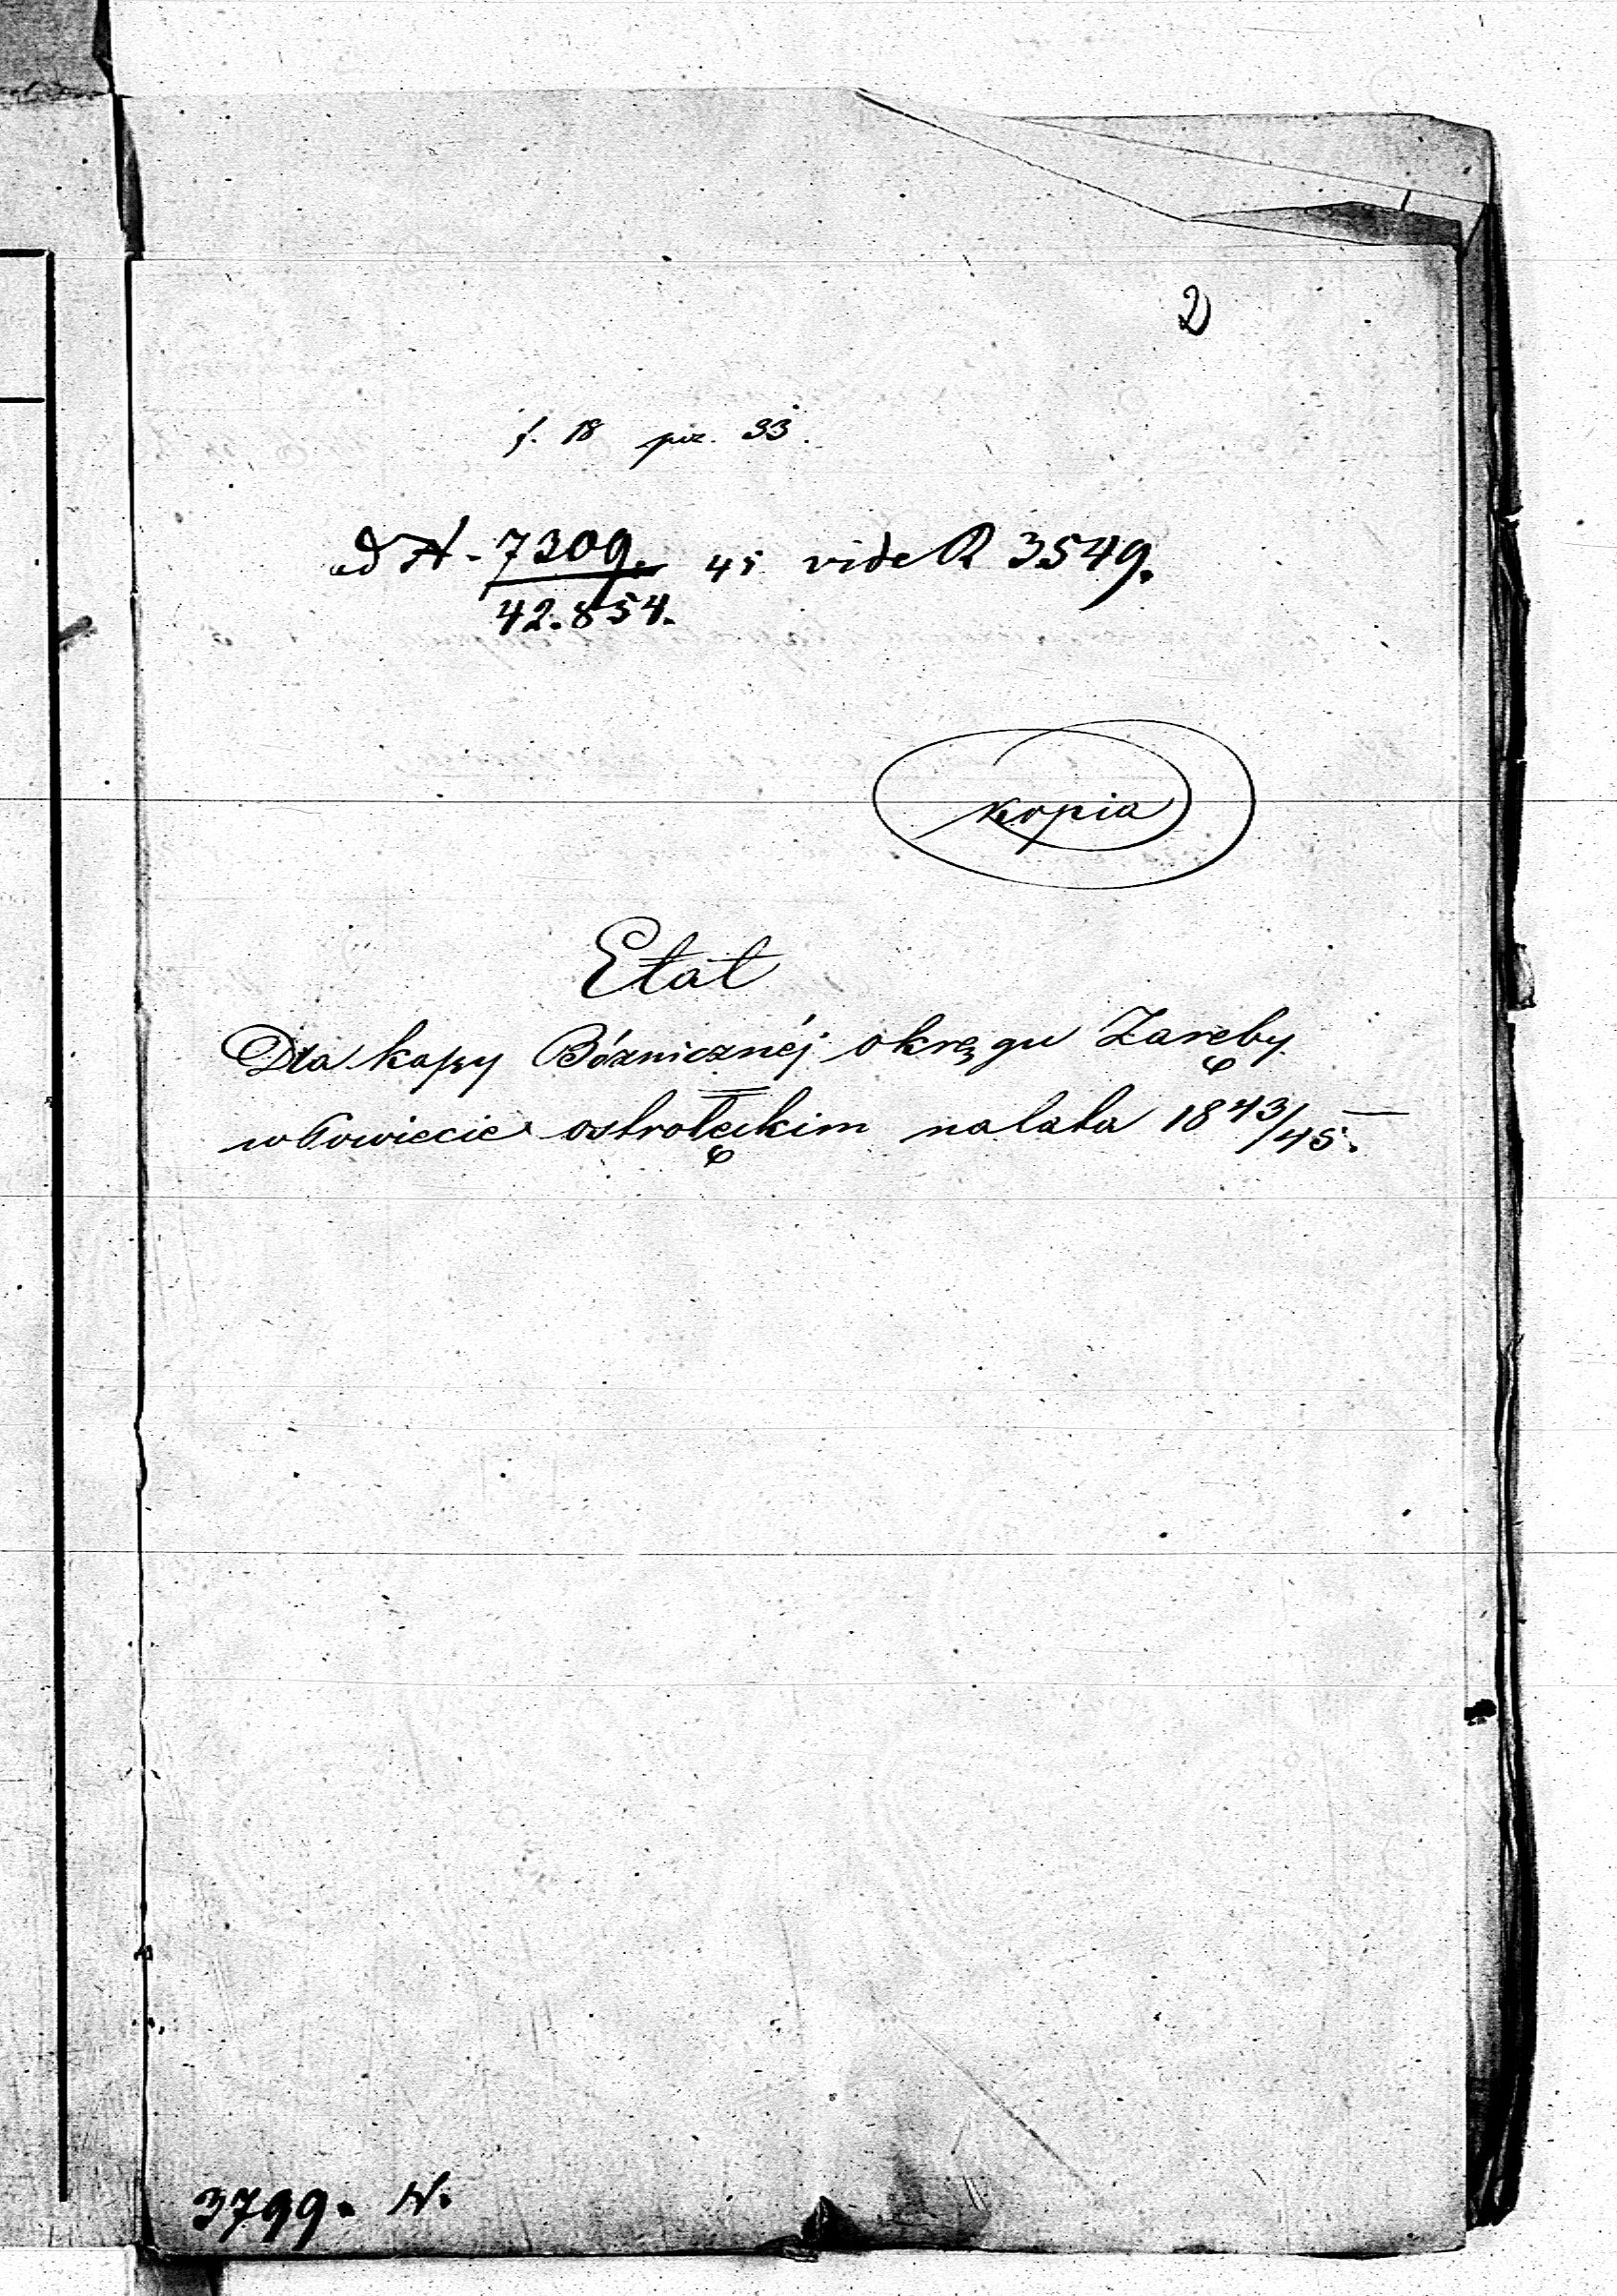 2
f. 18 poz. 33.
ad N. 7309. 45 vide R 3549.
42.854.
Kopia
Etat
Dla kassy Bóżnicznéj okręgu Zaręby
w Powiecie ostrołęckim na lata 1843/45.
3799. N.